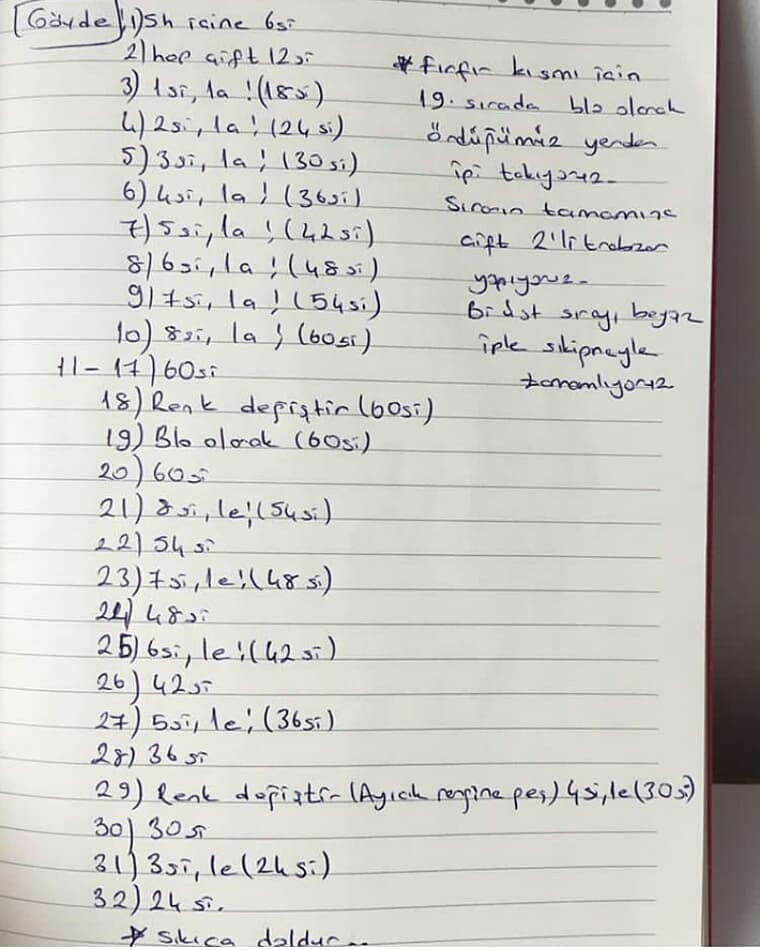 Gövde 1) Sh içine 6si
2) hep çift 12si
3) 1si, 1a ! (18si)
4) 2si, 1a ! (24si)
5) 3si, 1a ! (30si)
6) 4si, 1a ! (36si)
7) 5si, 1a ! (42si)
8) 6si, 1a ! (48si)
9) 7si, 1a ! (54si)
10) 8si, 1a ! (60si)
11-17) 60si
18) Renk değiştir (60si)
19) Blo olarak (60si)
20) 60si
21) 8si, 1e! (54si)
22) 54si
23) 7si, 1e! (48si)
24) 48si
25) 6si, 1e! (42si)
26) 42si
27) 5si, 1e! (36si)
28) 36si
29) Renk değiştir (Ayıcık rengine geç) 4si, 1e (30si)
30) 30si
31) 3si, 1e (24si)
32) 24si.
* sıkıca doldur...
* fırfır kısmı için
19. sırada blo olarak
ördüğümüz yerden
ipi takıyoruz.
Sıranın tamamına
çift 2'li trabzan
yapıyoruz.
Bi üst sırayı beyaz
iple sıkiğneyle
tamamlıyoruz